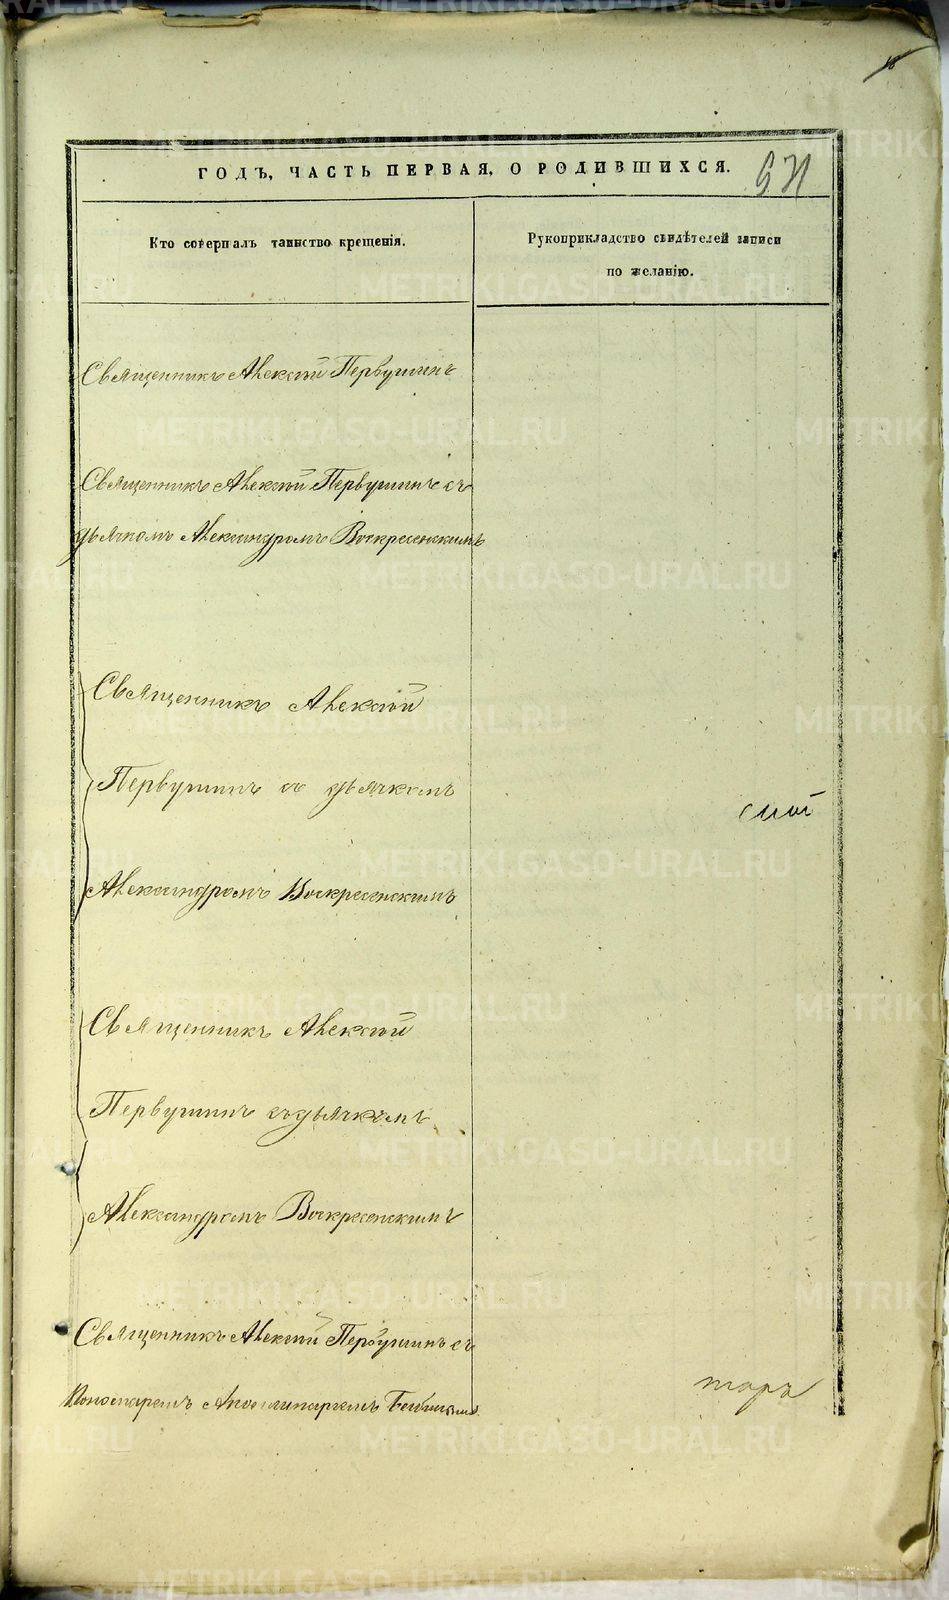 ГОДЪ, ЧАСТЬ ПЕРВАЯ, О РОДИВШИХСЯ.
Кто совершалъ таинство крещенія.
Рукоприкладство свидѣтелей записи
по желанію.
Священникъ Алексій Первушинъ
Священникъ Алексій Первушинъ съ
дьячкомъ Александромъ Воскресенскимъ
Священникъ Алексій
Первушинъ съ дьячкомъ
Александромъ Воскресенскимъ
Священникъ Алексій
Первушинъ съ дьячкомъ
Александромъ Воскресенскимъ
Священникъ Алексій Первушинъ съ
Пономаремъ Аполлинаріемъ
METRIKI.GASO-URAL.RU